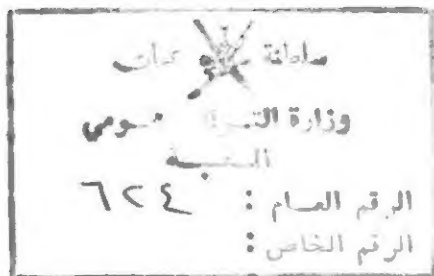 سلطنة عمان
وزارة التراث القومي
المكتبة
الرقم العام : ٦٢٤
الرقم الخاص :